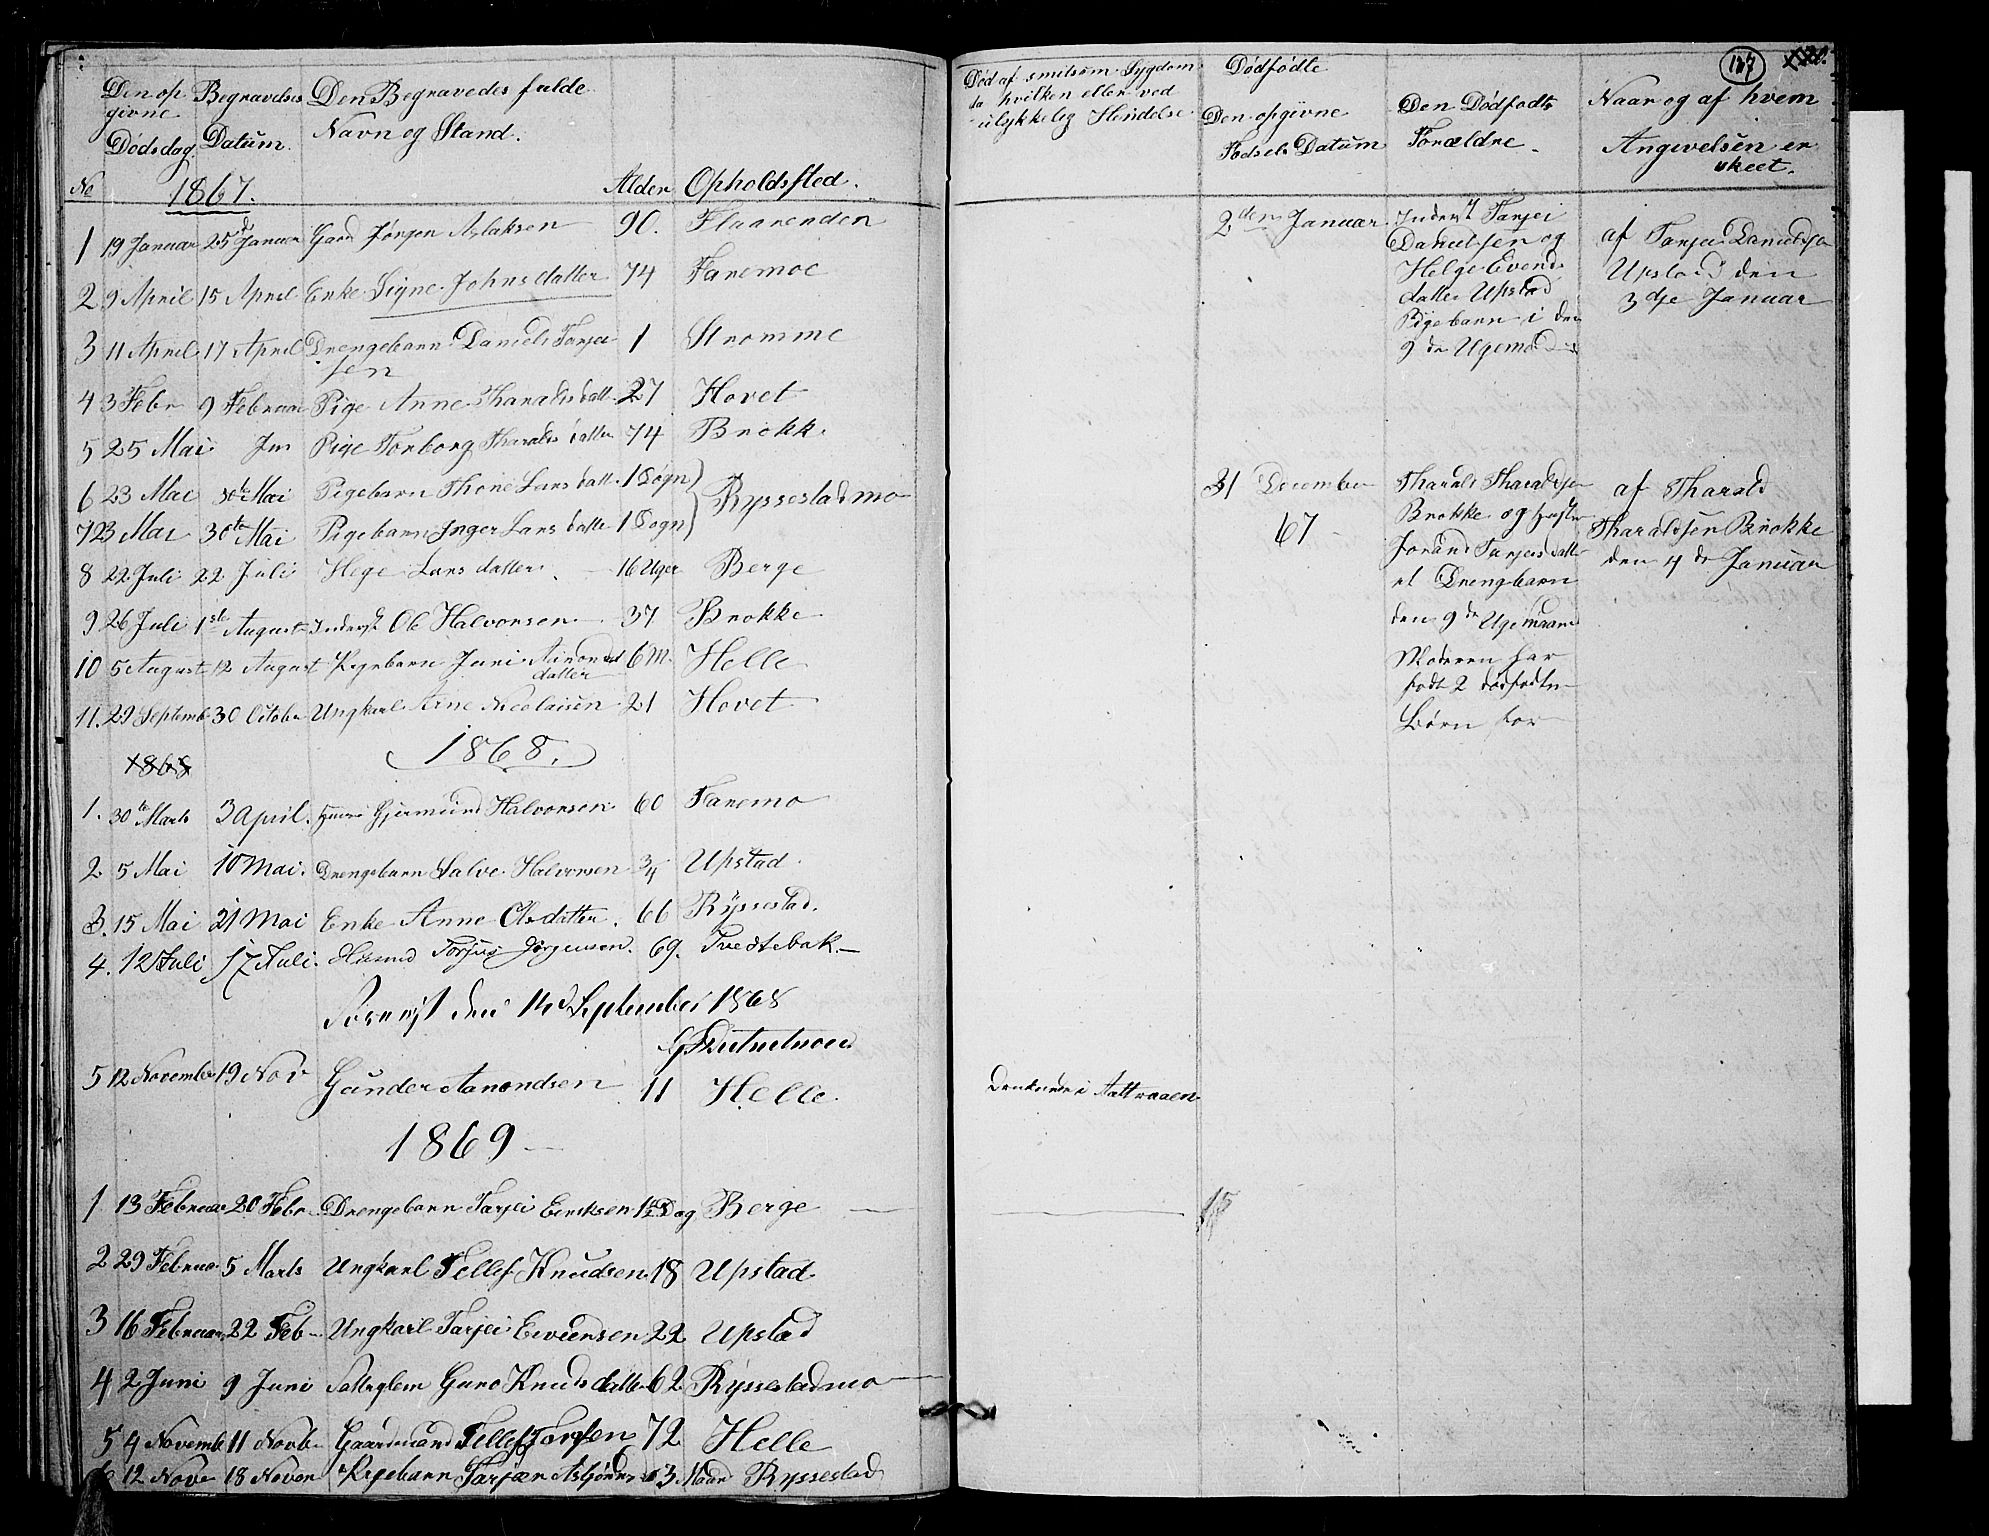 Den op Begravelses Den Begravedes fulde
givne
Dødsdag. Datum. Navn og Stand.
No 1867. Alder Opholdsfted.
1 19 Januar 25 Januar Gaard Jørgen Aslaksen 90. Flaarenden
2 9 April 15 April Enke Signe Johnsdatter 74 Fanemoe
3 11 April 17 April Drengebarn Daniel Tarjei 1 Stromme
sen
4 3 Febr 9 Februar Pige Anne Tharaldsdatt 27 Hovet
5 25 Mai Jun Pige Torborg Tharaldsdatter 74 Brokke
6 23 Mai 30te Mai Pigebarn Thone Larsdatt 1 Døgn
Ryssestadmo
7 23 Mai 30te Mai Pigebarn Inger Larsdatte 1 Døgn
8 22 Juli 22 Juli Hege Larsdatter 16 Uger Berge
9 26 Juli 1ste August Inderst Ole Halvorsen 37 Brokke
10 5 August 12 August Pigebarn Juni Aanonds 6 M. Helle
datter
11. 29 Septemb 30 October Ungkarl Arne Nicolaisen 21 Hovet
1868.
1868
1. 30te Marts 3 April. Gjermund Halvorsen 60 Fanemo
2 5 Mai 10 Mai. Drengebarn Salve Halvorsen 3/4 Upstad
3. 15 Mai 21 Mai Enke Anne Olsdatter. 66 Ryssestad.
4. 12 Juli 17 Juli. Huusmd Torjus Jørgensen. 69. Tvedtebak
Forevist den 14d September 1868
5 12 November 19 Nov Gunder Aanondsen 11 Helle.
1869
1 13 Februar 20 Febr Drengebarn Tarjei Eeriksen 1 Dag Berge
2 29 Februa 5 Marts Ungkarl Tellef Knudsen 18 Upstad
3 16 Februar 22 Feb Ungkarl Tarjei Evensen 22 Upstad
4 2 Juni 9 Juni Guro Knudsdatte 62 Ryssestadmo
5 4 Novemb 11 Novb Gaardmand Tellef Torjsen 72 Helle
6 12 Nove 18 Noven Pigebarn Tarjær 3 Maan Ryssestad
137
Død af smitsom Sygdom
da hvilken eller ved
ulykkelig Hendelse
Dødfødte
Den opgivne
Fødsels Datum
Den Dødfødte
Forældre
Naar og af hvem
Angivelsen er
skeet.
2den Januar
Inderst Tarjei
Danielsen og
Helge Evends
datter Upstad
Pigebarn i den
9de Ugemaaned
af Tarjei Danielsen
Upstad den
3dje Januar
31 December
67
Tharald Tharaldsen
Brokke og Hustru
Jorand Tarjeisdatte
et Drengbarn
den 9de Ugemaand
Moderen har
født 2 dødfødte
Børn for
af Tharald
Tharaldsen Brokke
den 4de Januar
Druknede i Aattraaen